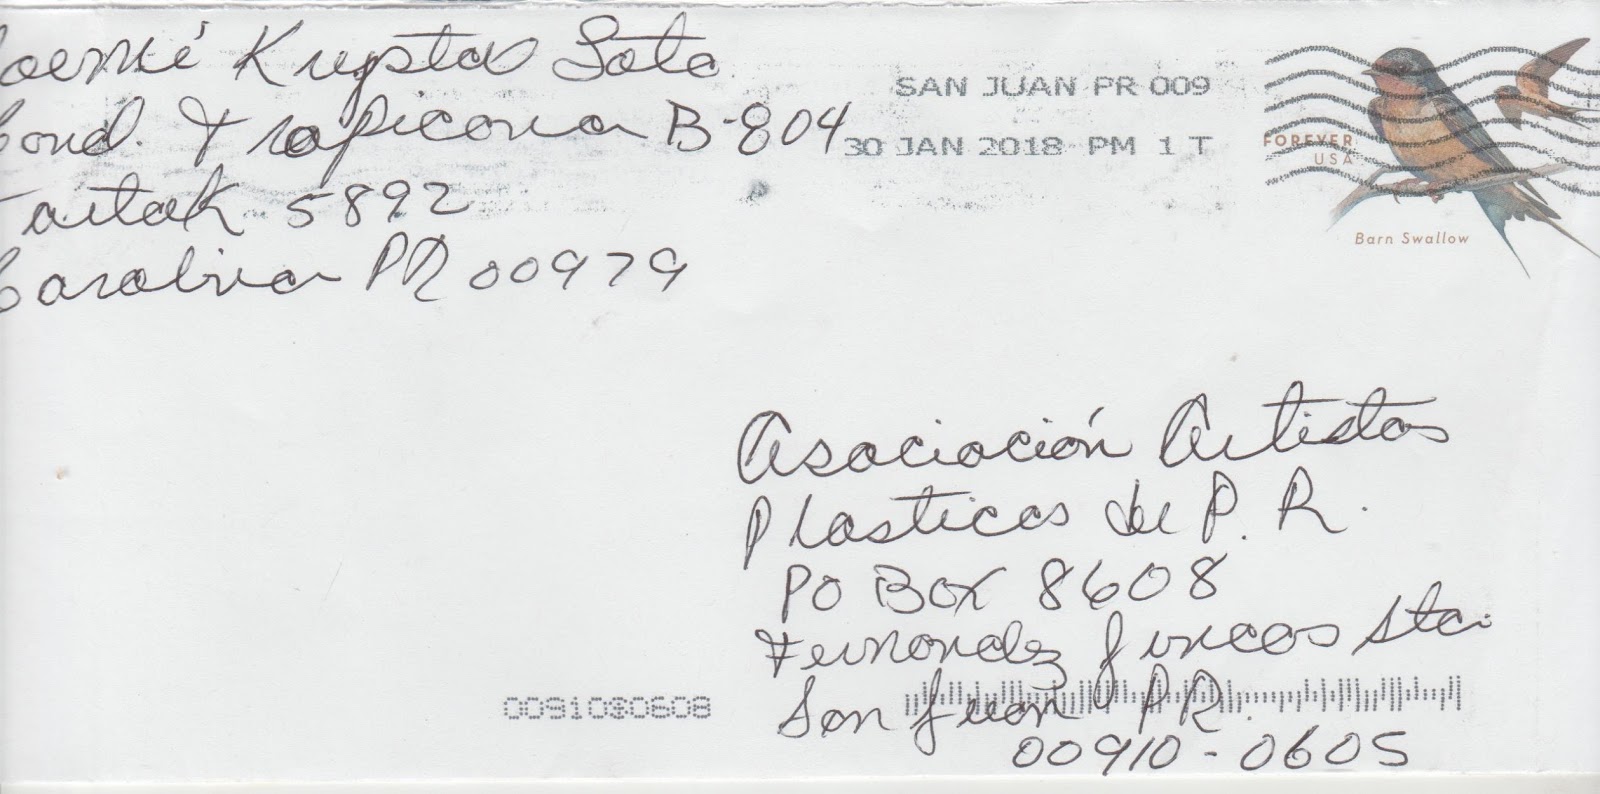 oemí Krystal Soto
Cond. Tropicana B-804
Tartak 5892
Carolina PR 00979
SAN JUAN PR 009
30 JAN 2018 PM 1 T
FOREVER
USA
Barn Swallow
Asociación Artistas
Plasticos de P. R.
PO Box 8608
Fernandez Juncos Sta.
San Juan PR.
00910-0605